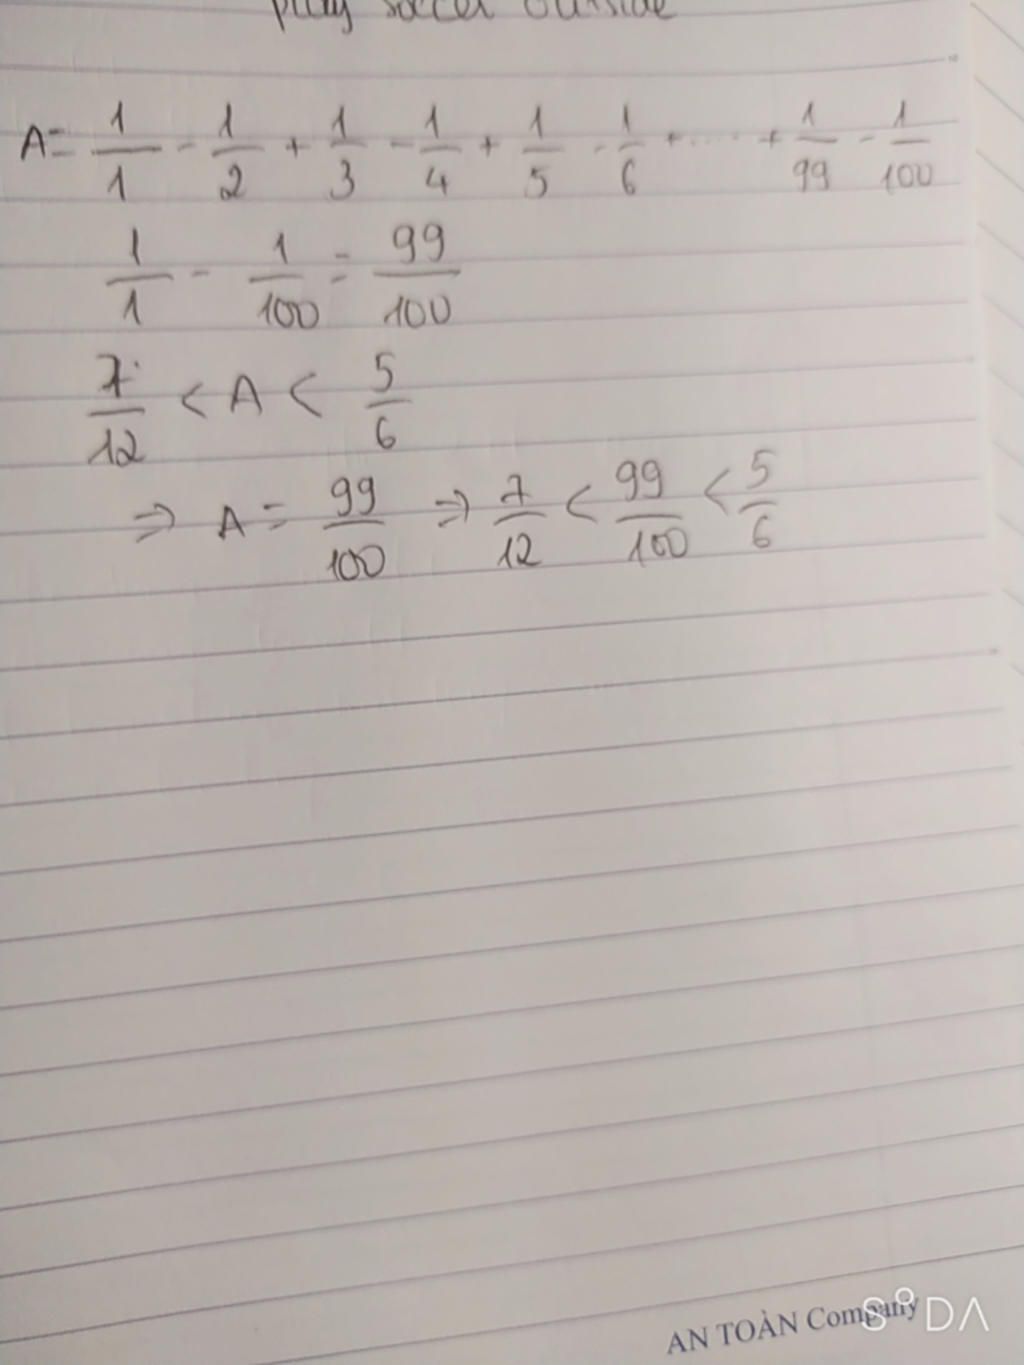 play soccer outside
A = 1/1 - 1/2 + 1/3 - 1/4 + 1/5 - 1/6 + ..... + 1/99 - 1/100
1/1 - 1/100 = 99/100
7/12 < A < 5/6
⇒ A = 99/100 ⇒ 7/12 < 99/100 < 5/6
AN TOÀN Company
SODA